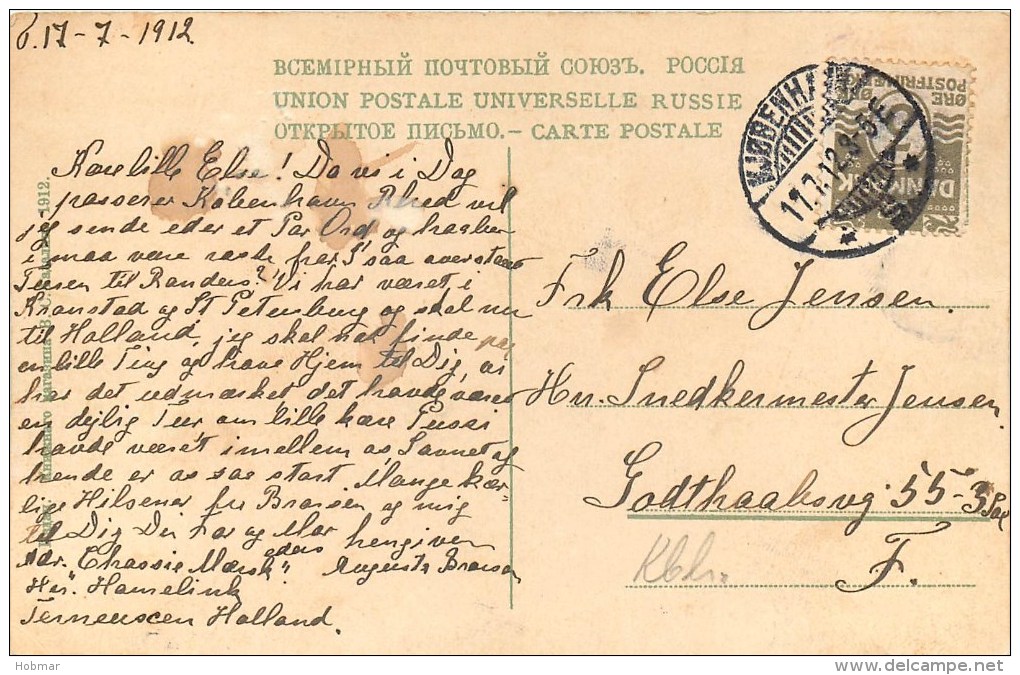 d. 17 - 7 - 1912.
ВСЕМІРНЫЙ ПОЧТОВЫЙ СОЮЗЪ. РОССІЯ
UNION POSTALE UNIVERSELLE RUSSIE
ОТКРЫТОЕ ПИСЬМО.— CARTE POSTALE
Kære lille Else! Da vi i Dag
passerer København Rhed vil
jeg sende eder et Par Ord og haaber
i maa være raske fra
Turen til Randers? Vi har været i
Kronstad og St Petersburg og skal nu
til Holland, jeg skal nok finde
en lille Ting og have Hjem til Dig, vi
har det udmærket det havde været
en dejlig Tur om lille kære Pussi
havde været imellem os, Savnet af
hende er os saa stort. Mange kær-
lige Hilsener fra Broersen og mig
til Dig Din Far og Mor
eders hengiven
Adr. "Chassie Mærsk" Augusta
Her. Hamelink
Terneuzen Holland.
1912.
KJØBENHAVN
17.7.12. 8-5E
ØRE
POSTFRIM
ØRE
DANMARK
Frk Else Jensen
Hr. Snedkermester Jensen
Godthaabsvg. 55-3 Sal
F.
Kbh.
Hobmar
delcampe.net